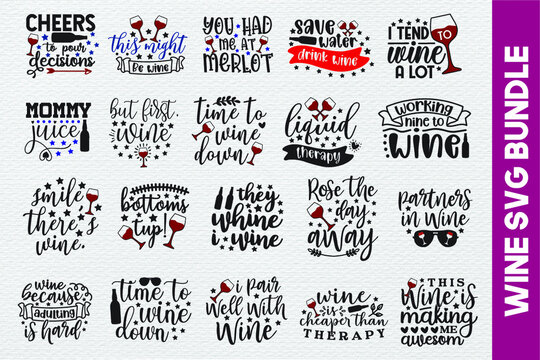 CHEERS
to pour
decisions
this might
Be wine
YOU HAD
me AT
MERLOT
save
water
drink wine
I TEND
TO
wine
A LOT
MOMMY
juice
but first,
wine
time to
wine
down
liquid
therapy
working
nine to
wine
smile
there's
wine.
bottoms
up!
they
whine
i wine
Rose the
day
away
Partners
in Wine
wine
because
adulting
is hard
time to
wine
down
i pair
Well With
Wine
wine
is
cheaper than
THERAPY
THIS
Wine is
making
me
awesom
WINE SVG BUNDLE